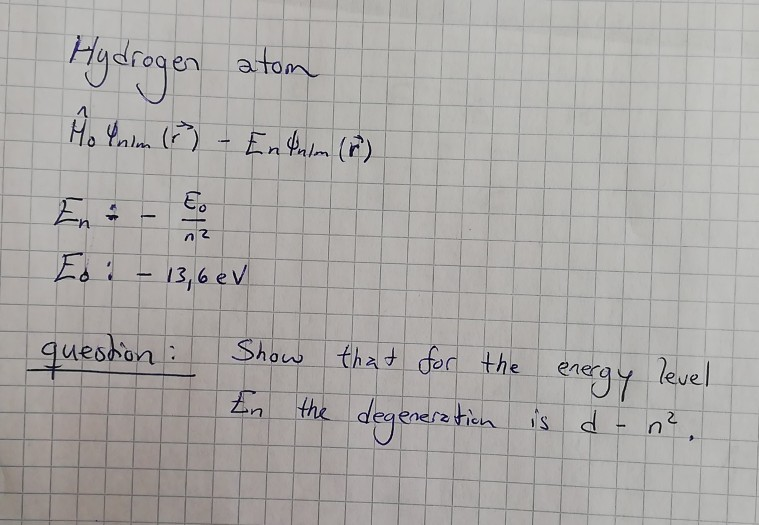 Hydrogen atom
Ĥ₀ ψₙₗₘ (r⃗) - Eₙ ψₙₗₘ (r⃗)
Eₙ = - E₀/n²
E₀ : - 13,6 eV
question : Show that for the energy level
Eₙ the degeneration is d - n².